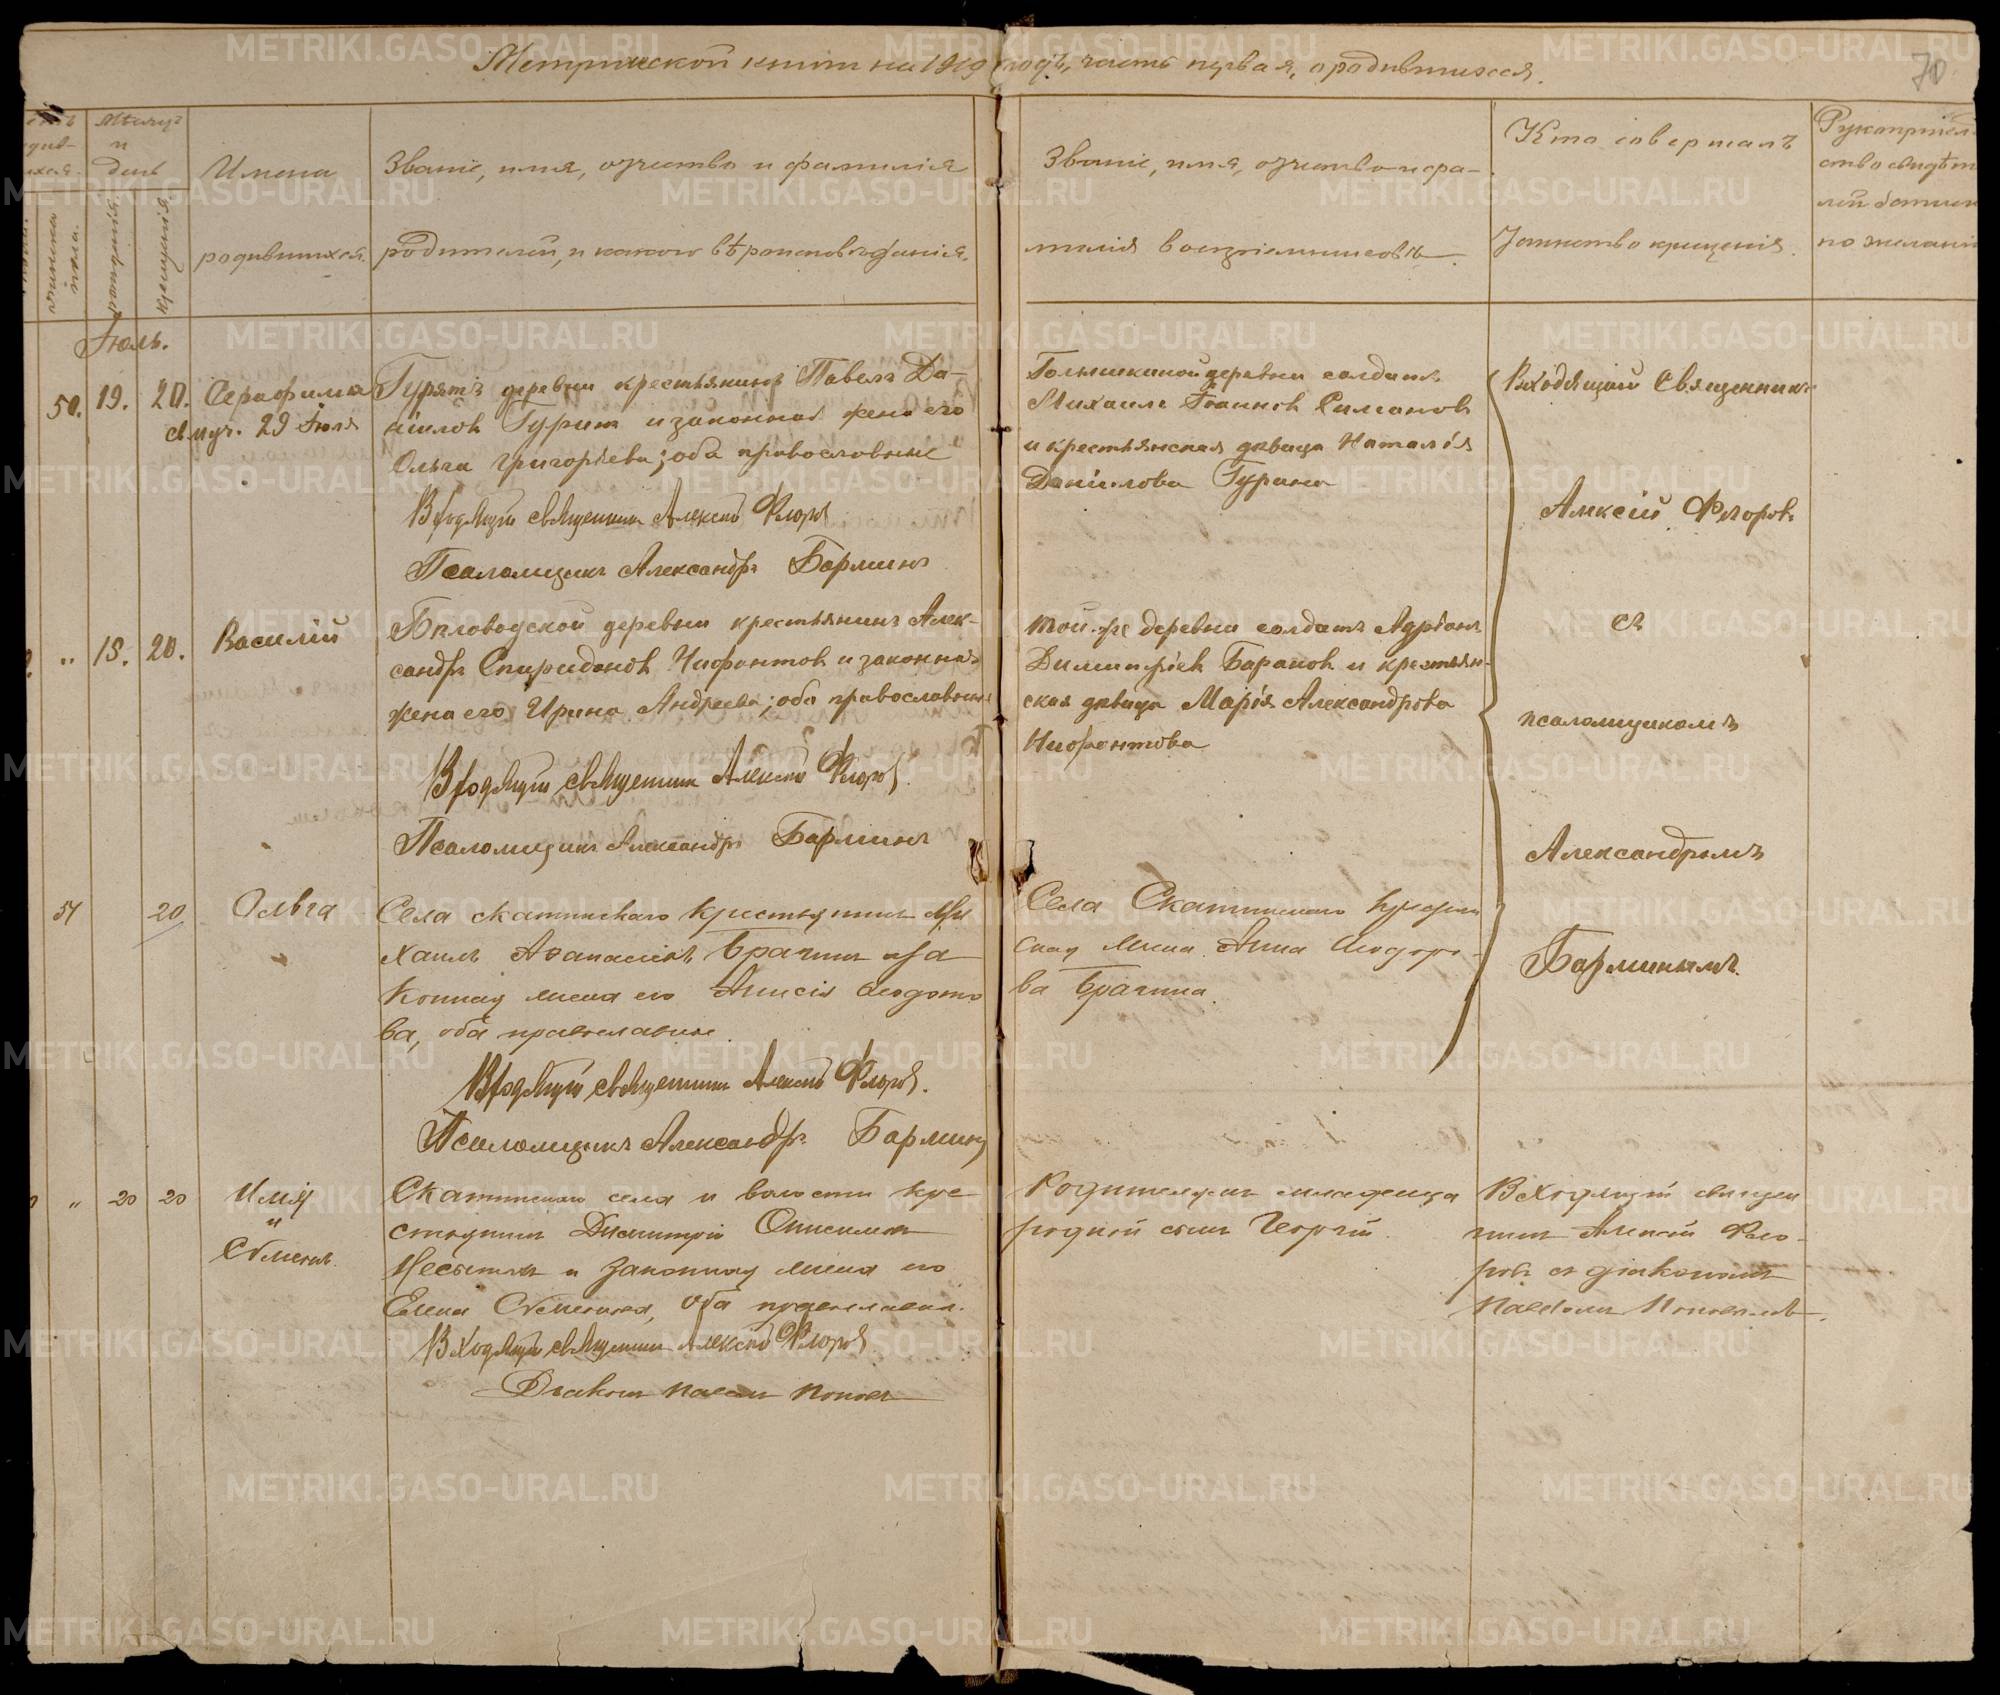 Метрической книги на 1919 годъ, часть первая, о родившихся.
70
Мѣсяцъ
и
день
рожденія.
крещенія.
Имена
родившихся.
Званіе, имя, отчество и фамилія
родителей, и какого вѣроисповѣданія.
Званіе, имя, отчество и фа-
милія воспріемниковъ.
Кто совершалъ
Таинство крещенія.
Рукоприклад
ство свидѣте
лей записи
по желанію
Іюль.
50. 19. 20. Серафима
29 Іюля
Гурятъ деревни крестьянинъ Павелъ Да-
ніиловъ Гуринъ и законная жена его
Ольга Григорьева; оба православные
Входящій священникъ Алексій Флоровъ
Псаломщикъ Александръ Барминъ
деревни солдатъ
Михаилъ Іоанновъ
и крестьянская дѣвица Наталія
Даніилова Гурина
Входящій Священникъ
Алексій Флоровъ
съ
псаломщикомъ
Александромъ
Барминымъ.
" 18. 20. Василій
Бѣловодской деревни крестьянинъ Алек-
сандръ Спиридоновъ Нифонтовъ и законная
жена его Ирина Андреева; оба православные
Входящій священникъ Алексій Флоровъ
Псаломщикъ Александръ Барминъ
той-же деревни солдатъ Адріанъ
Димитріевъ Барановъ и крестьян-
ская дѣвица Марія Александрова
Нифонтова
51 20 Ольга
Села Скатинскаго крестьянинъ Ми
хаилъ Аѳанасіевъ Брагинъ и за
конная жена его Анисія Ѳедото
ва, оба православные.
Входящій священникъ Алексій Флоровъ.
Псаломщикъ Александръ Барминъ
Села Скатинскаго крестьян
ская жена Анна Ѳеодоро-
ва Брагина.
" 20 20 Илія
"
Симеонъ.
Скатинскаго села и волости кре
стьянинъ Димитрій Онисимовъ
и законная жена его
Елена оба православные.
Входящій священникъ Алексій Флоровъ
Діаконъ Павелъ Поповъ
Родителями младенца
родной сынъ Георгій.
Входящій священ
никъ Алексій Фло-
ровъ съ діакономъ
Павломъ Поповымъ.